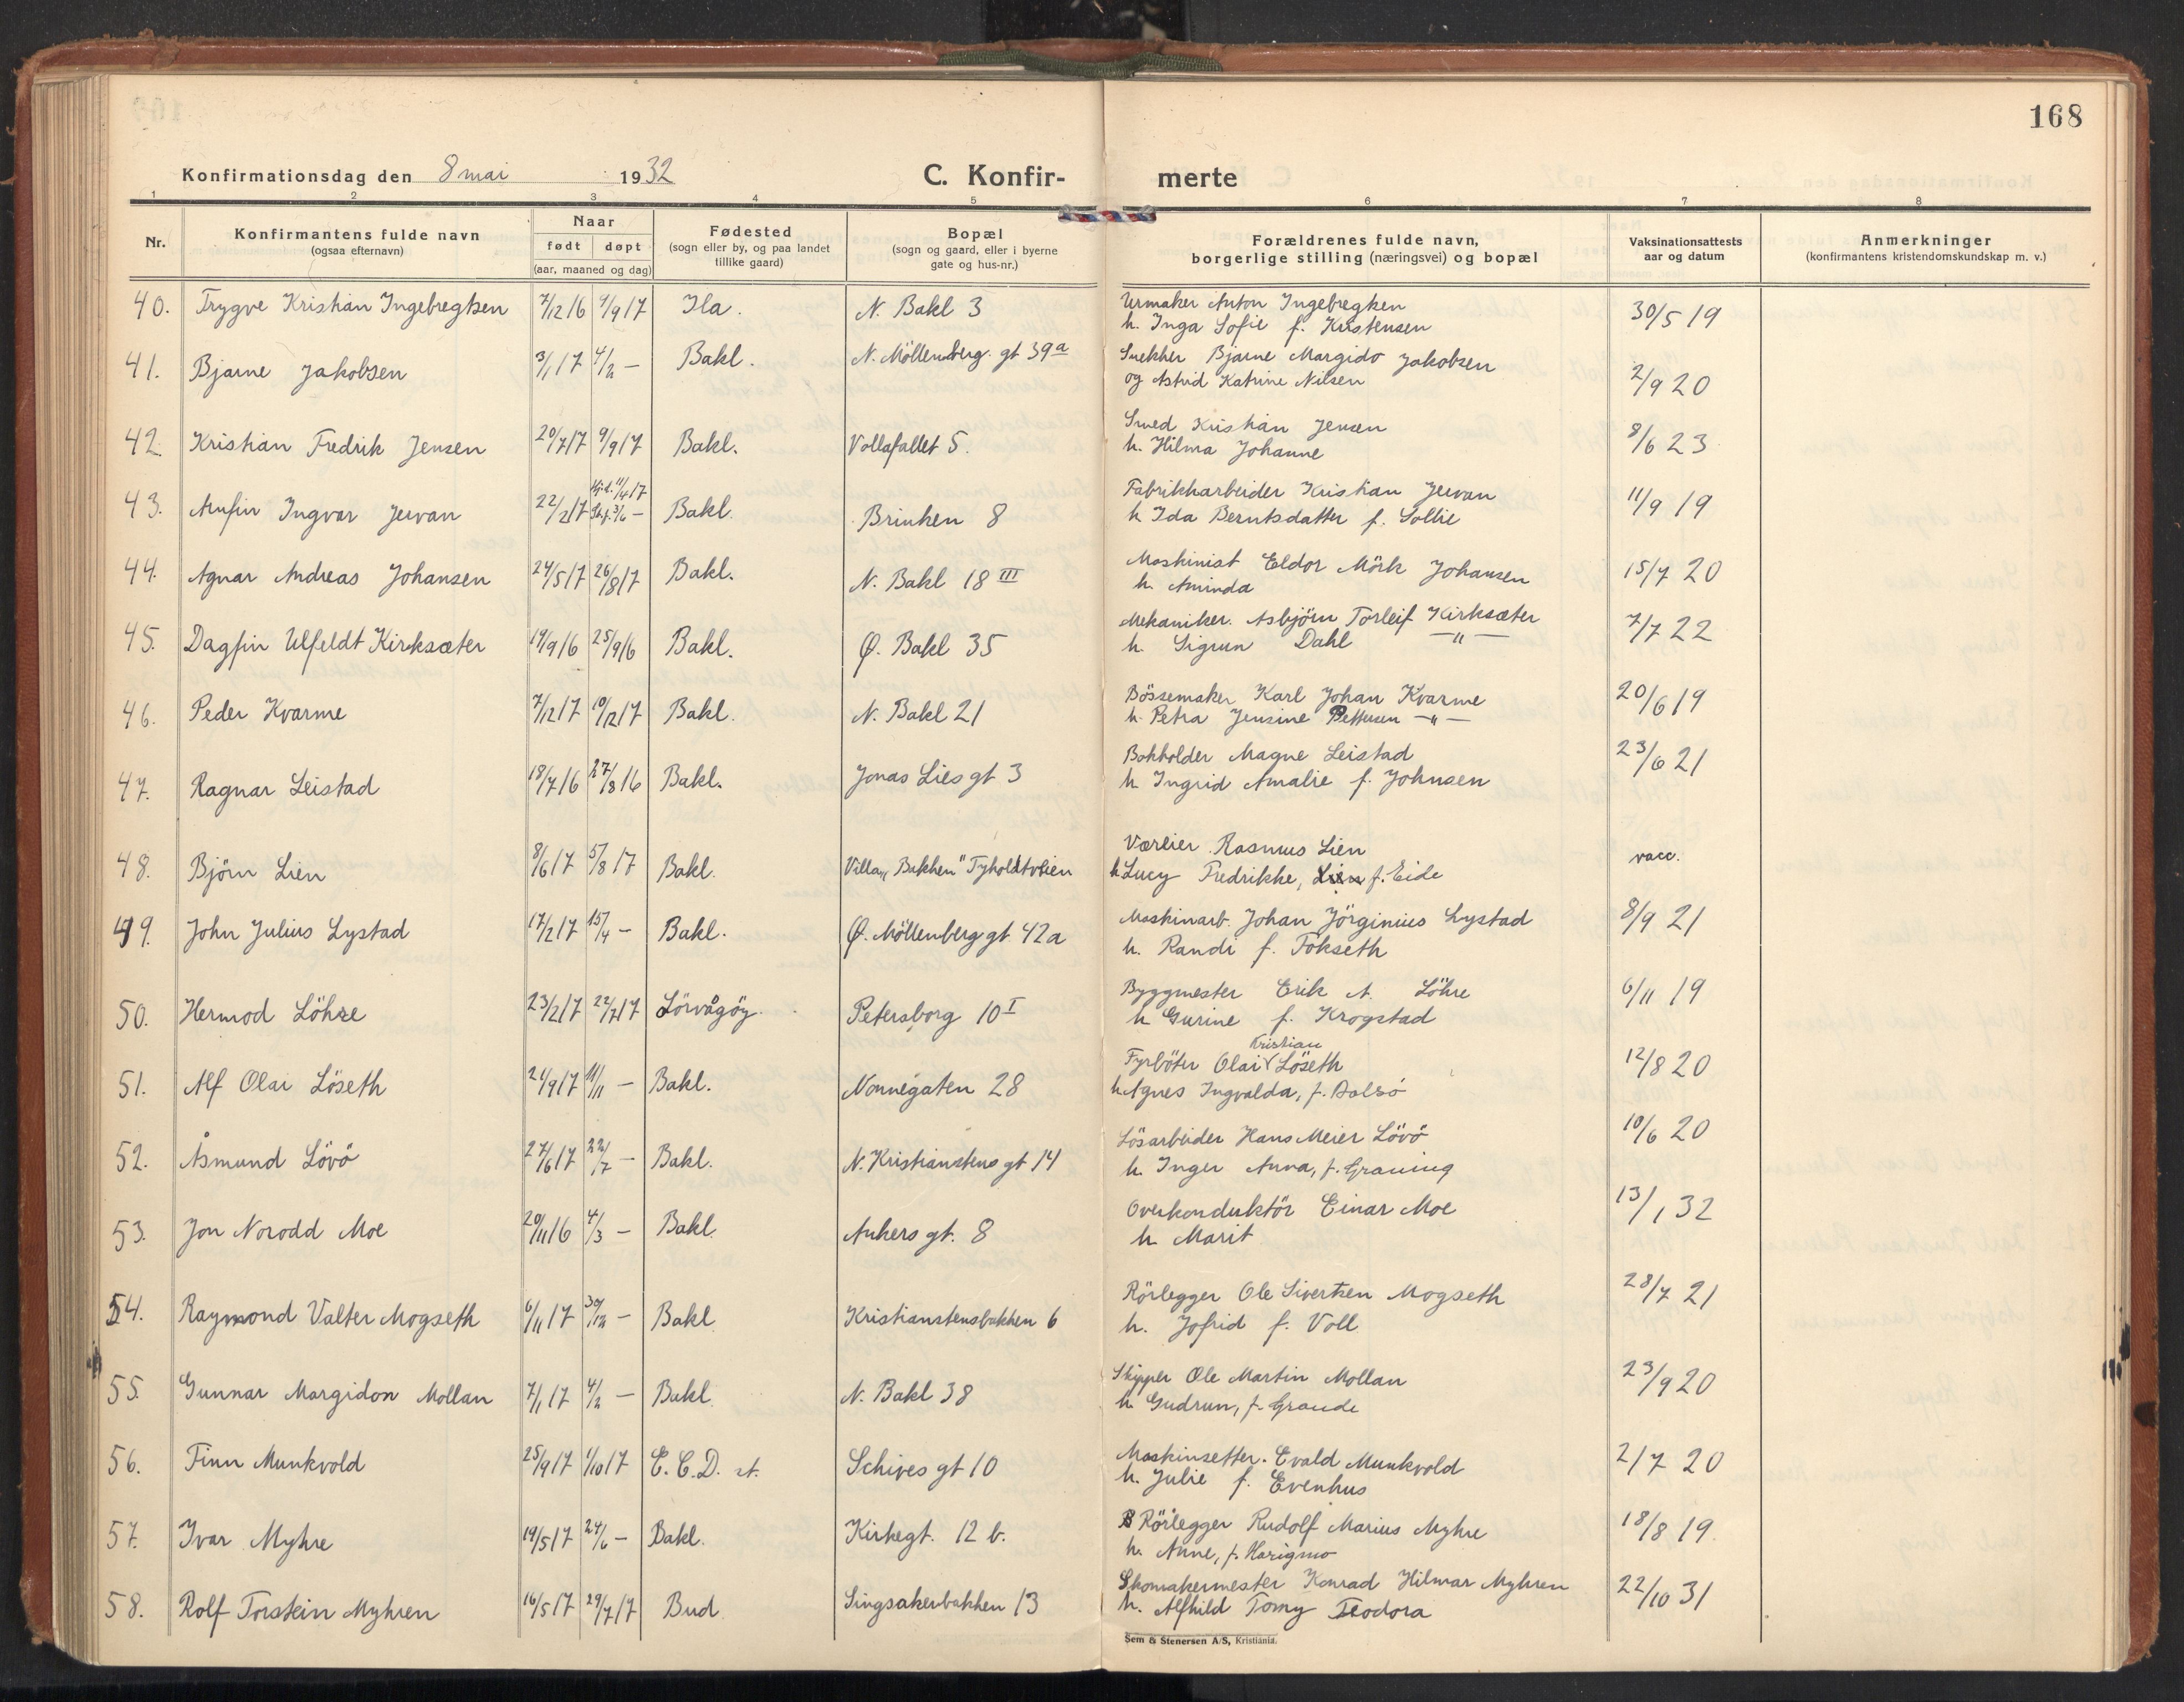 168
Konfirmationsdag den 8 mai 1932
C. Konfir-
merte
1 2 3 4 5 6 7 8
Nr.
Konfirmantens fulde navn
(ogsaa efternavn)
Naar
født døpt
(aar, maaned og dag)
Fødested
(sogn eller by, og paa landet
tillike gaard)
Bopæl
(sogn og gaard, eller i byerne
gate og hus-nr.)
Forældrenes fulde navn,
borgerlige stilling (næringsvei) og bopæl
Vaksinationsattests
aar og datum
Anmerkninger
(konfirmantens kristendomskundskap m. v.)
40. Trygve Kristian Ingebregtsen 7/12 16 9/9 17 Ila. N. Bakl 3
Urmaker Anton Ingebregtsen 30/5 19
h. Inga Sofie f. Kristensen
41. Bjarne Jakobsen 3/1 17 4/2 — Bakl. N. Möllenberg. gt 39a
Snekker Bjarne Margido Jakobsen 2/9 20
og Astrid Katrine Nilsen
42. Kristian Fredrik Jensen 20/7 17 9/9 17 Bakl. Vollafallet 5.
Smed Kristian Jensen 8/6 23
h. Hilma Johanne
43. Arnfin Ingvar Jervan 22/2 17 Hj.d. 11/4 17 St.f. 3/6 — Bakl. Brinken 8
Fabrikkarbeider Kristian Jervan 11/9 19
h Ida Berntsdatter f. Sollie
44. Agnar Andreas Johansen 24/5 17 26/8 17 Bakl. N. Bakl 18 III
Maskinist Eldor Mörk Johansen 15/7 20
h. Aminda
45. Dagfin Ulfeldt Kirksæter 19/9 16 25/9 16 Bakl. Ø. Bakl 35
Mekaniker. Asbjörn Torleif Kirksæter 7/7 22
h. Sigrun Dahl — " —
46. Peder Kvarme 7/12 17 10/12 17 Bakl. N. Bakl 21
Bössemaker Karl Johan Kvarme 20/6 19
h. Petra Jensine Pettersen — " —
47. Ragnar Leistad 18/7 16 27/8 16 Bakl. Jonas Lies gt 3
Bokholder Magne Leistad 23/6 21
h Ingrid Amalie f. Johnsen
48. Björn Lien 8/6 17 5/8 17 Bakl. Villa „Bakken" Tyholdtveien
Værlier Rasmus Lien vacc.
h. Lucy Fredrikke, Lien f. Eide
49. John Julius Lystad 17/2 17 15/4 — Bakl. Ø. Möllenberg gt 42a
Maskinarb. Johan Jörginius Lystad 8/9 21
h. Randi f. Tokseth
50. Hermod Löhre 23/2 17 22/7 17 Sörvågöy. Petersborg 10 I
Byggmester Erik A. Löhre 6/11 19
h Gurine f. Krogstad
51. Alf Olai Löseth 21/9 17 11/11 — Bakl. Nonnegaten 28
Kristian
Fyrböter Olai Löseth 12/8 20
h. Agnes Ingvalda, f. Dalsö
52. Åsmund Lövö 27/6 17 22/7 — Bakl. N. Kristianstens gt 14
Lösarbeider Hans Meier Lövö 10/6 20
h. Inger Anna, f. Graning
53. Jon Norodd Moe 20/11 16 4/3 — Bakl. Ankers gt. 8
Overkonduktör Einar Moe 13/1 32
h. Marit
54. Raymond Valter Mogseth 6/11 17 30/12 — Bakl. Kristianstensbakken 6
Rörlegger Ole Sivertsen Mogseth 28/7 21
h. Jofrid f. Voll
55. Gunnar Margidon Mollan 7/1 17 4/2 — Bakl. N. Bakl 38
Skipper Ole Martin Mollan 23/9 20
h. Gudrun, f. Grande
56. Finn Munkvold 25/9 17 1/10 17 E. C. D. st. Schives gt 10
Maskinsetter. Evald Munkvold 2/7 20
h. Julie f. Evenhus
57. Ivar Myhre 19/5 17 24/6 — Bakl. Kirkegt. 12 b.
Rörlegger Rudolf Marius Myhre 18/8 19.
h. Anne, f. Harigmo
58. Rolf Torstein Myhren 16/5 17 29/7 17 Bud Singsakerbakken 13
Skomakermester Konrad Hilmar Myhren 22/10 31
h. Alfhild Tomy Teodora
Sem & Stenersen A/S, Kristiania.